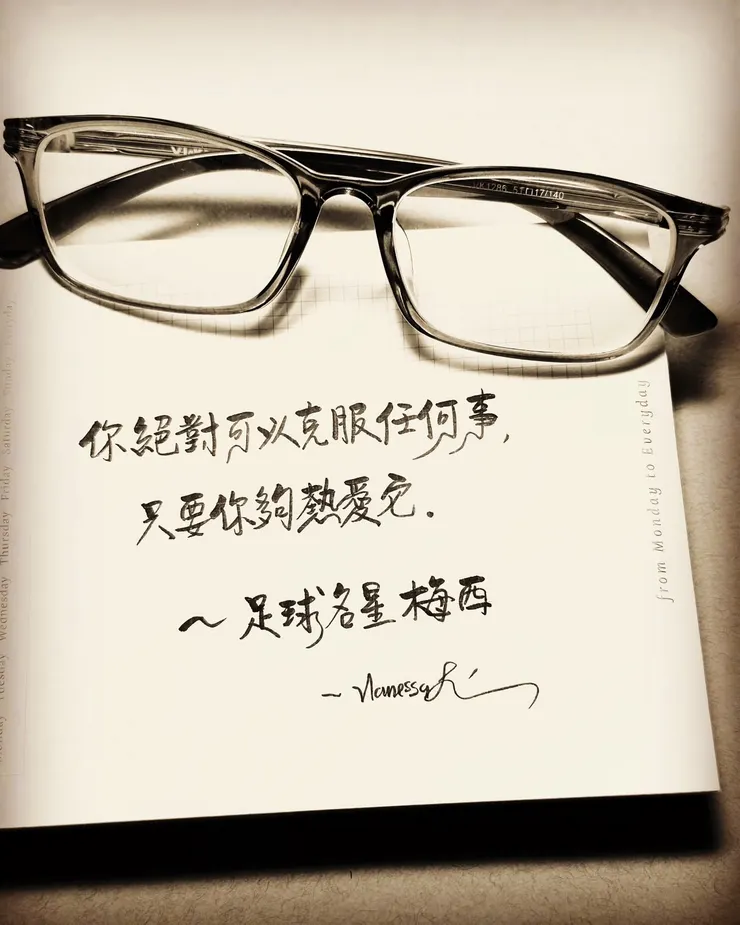 1286 51□17/140
你絕對可以克服任何事,
只要你夠熱愛它.
~ 足球名星梅西
~ Vanessa
from Monday to Everyday
Tuesday Wednesday Thursday Friday Saturday Sunday Everyday